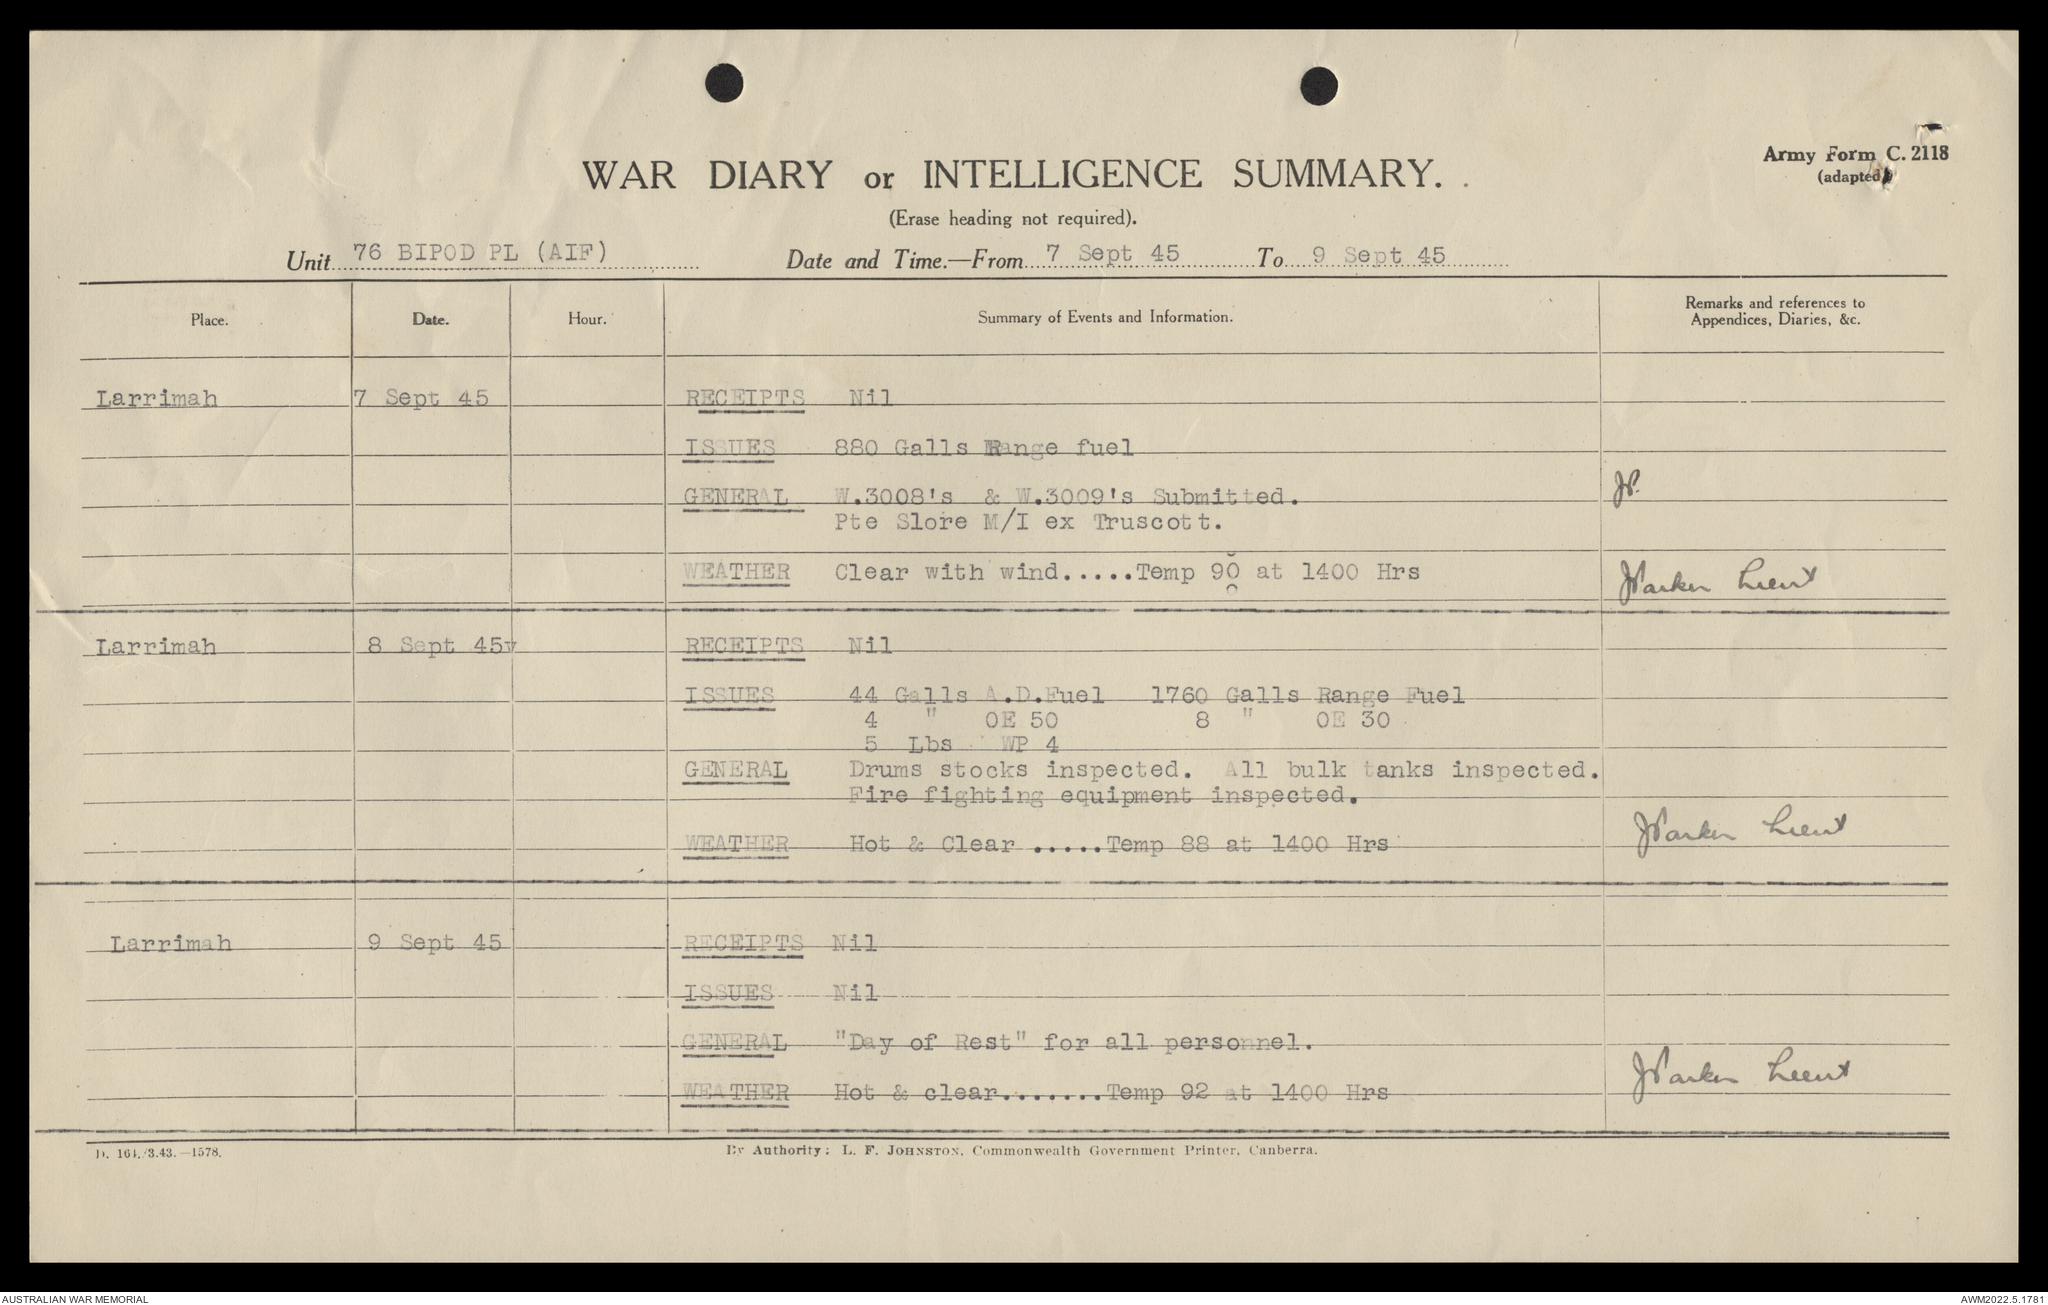 Army Form C. 2118
(adapted)
WAR DIARY or INTELLIGENCE SUMMARY.
(Erase heading not required).
Unit 76 BIPOD PL (AIF) Date and Time.—From 7 Sept 45 To 9 Sept 45
Place. Date. Hour. Summary of Events and Information. Remarks and references to
Appendices, Diaries, &c.
Larrimah 7 Sept 45 RECEIPTS Nil
ISSUES 880 Galls Range fuel
GENERAL W.3008's & W.3009's Submitted.
Pte Slore M/I ex Truscott.
WEATHER Clear with wind.....Temp 90 at 1400 Hrs Lieut
Larrimah 8 Sept 45 RECEIPTS Nil
ISSUES 44 Galls A.D.Fuel 1760 Galls Range Fuel
4 " OE 50 8 " OE 30
5 Lbs WP 4
GENERAL Drums stocks inspected. All bulk tanks inspected.
Fire fighting equipment inspected.
WEATHER Hot & Clear .....Temp 88 at 1400 Hrs Lieut
Larrimah 9 Sept 45 RECEIPTS Nil
ISSUES Nil
GENERAL "Day of Rest" for all personnel.
WEATHER Hot & clear.......Temp 92 at 1400 Hrs Lieut
D. 161./3.43.—1578. By Authority: L. F. JOHNSTON, Commonwealth Government Printer, Canberra.
AUSTRALIAN WAR MEMORIAL AWM2022.5.1781